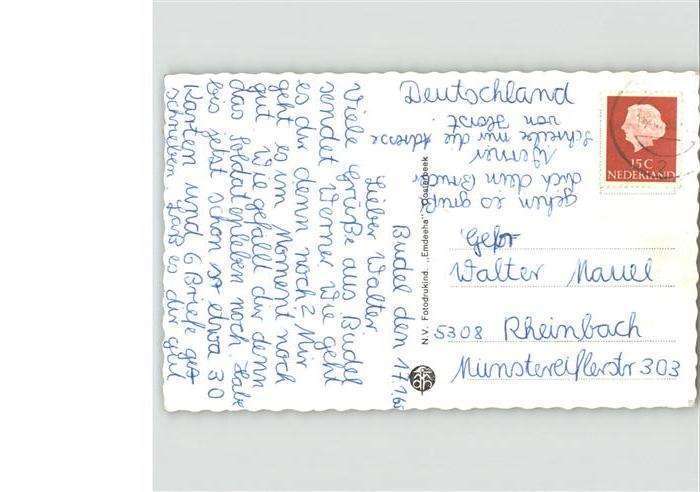 Budel den 17.1.68
Lieber Walter
Viele Grüße aus Budel
sendet Werner Wie geht
es dir denn noch? Mir
geht es im Moment noch
gut. Wie gefällt dir denn
das Soldatenleben noch. Habe
bis jetzt schon so etwa 30
Karten und 6 Briefe ges
schrieben. Laß es dir gut
gehen es grüßt
dich dein Bruder
Werner
Schreibe mir die Adresse
von Horst
Deutschland
Gefr
Walter Mauel
5308 Rheinbach
Münstereiflerstr 303
N.V. Fotodrukind. „Emdeeha" Oosterbeek
15 C
NEDERLAND